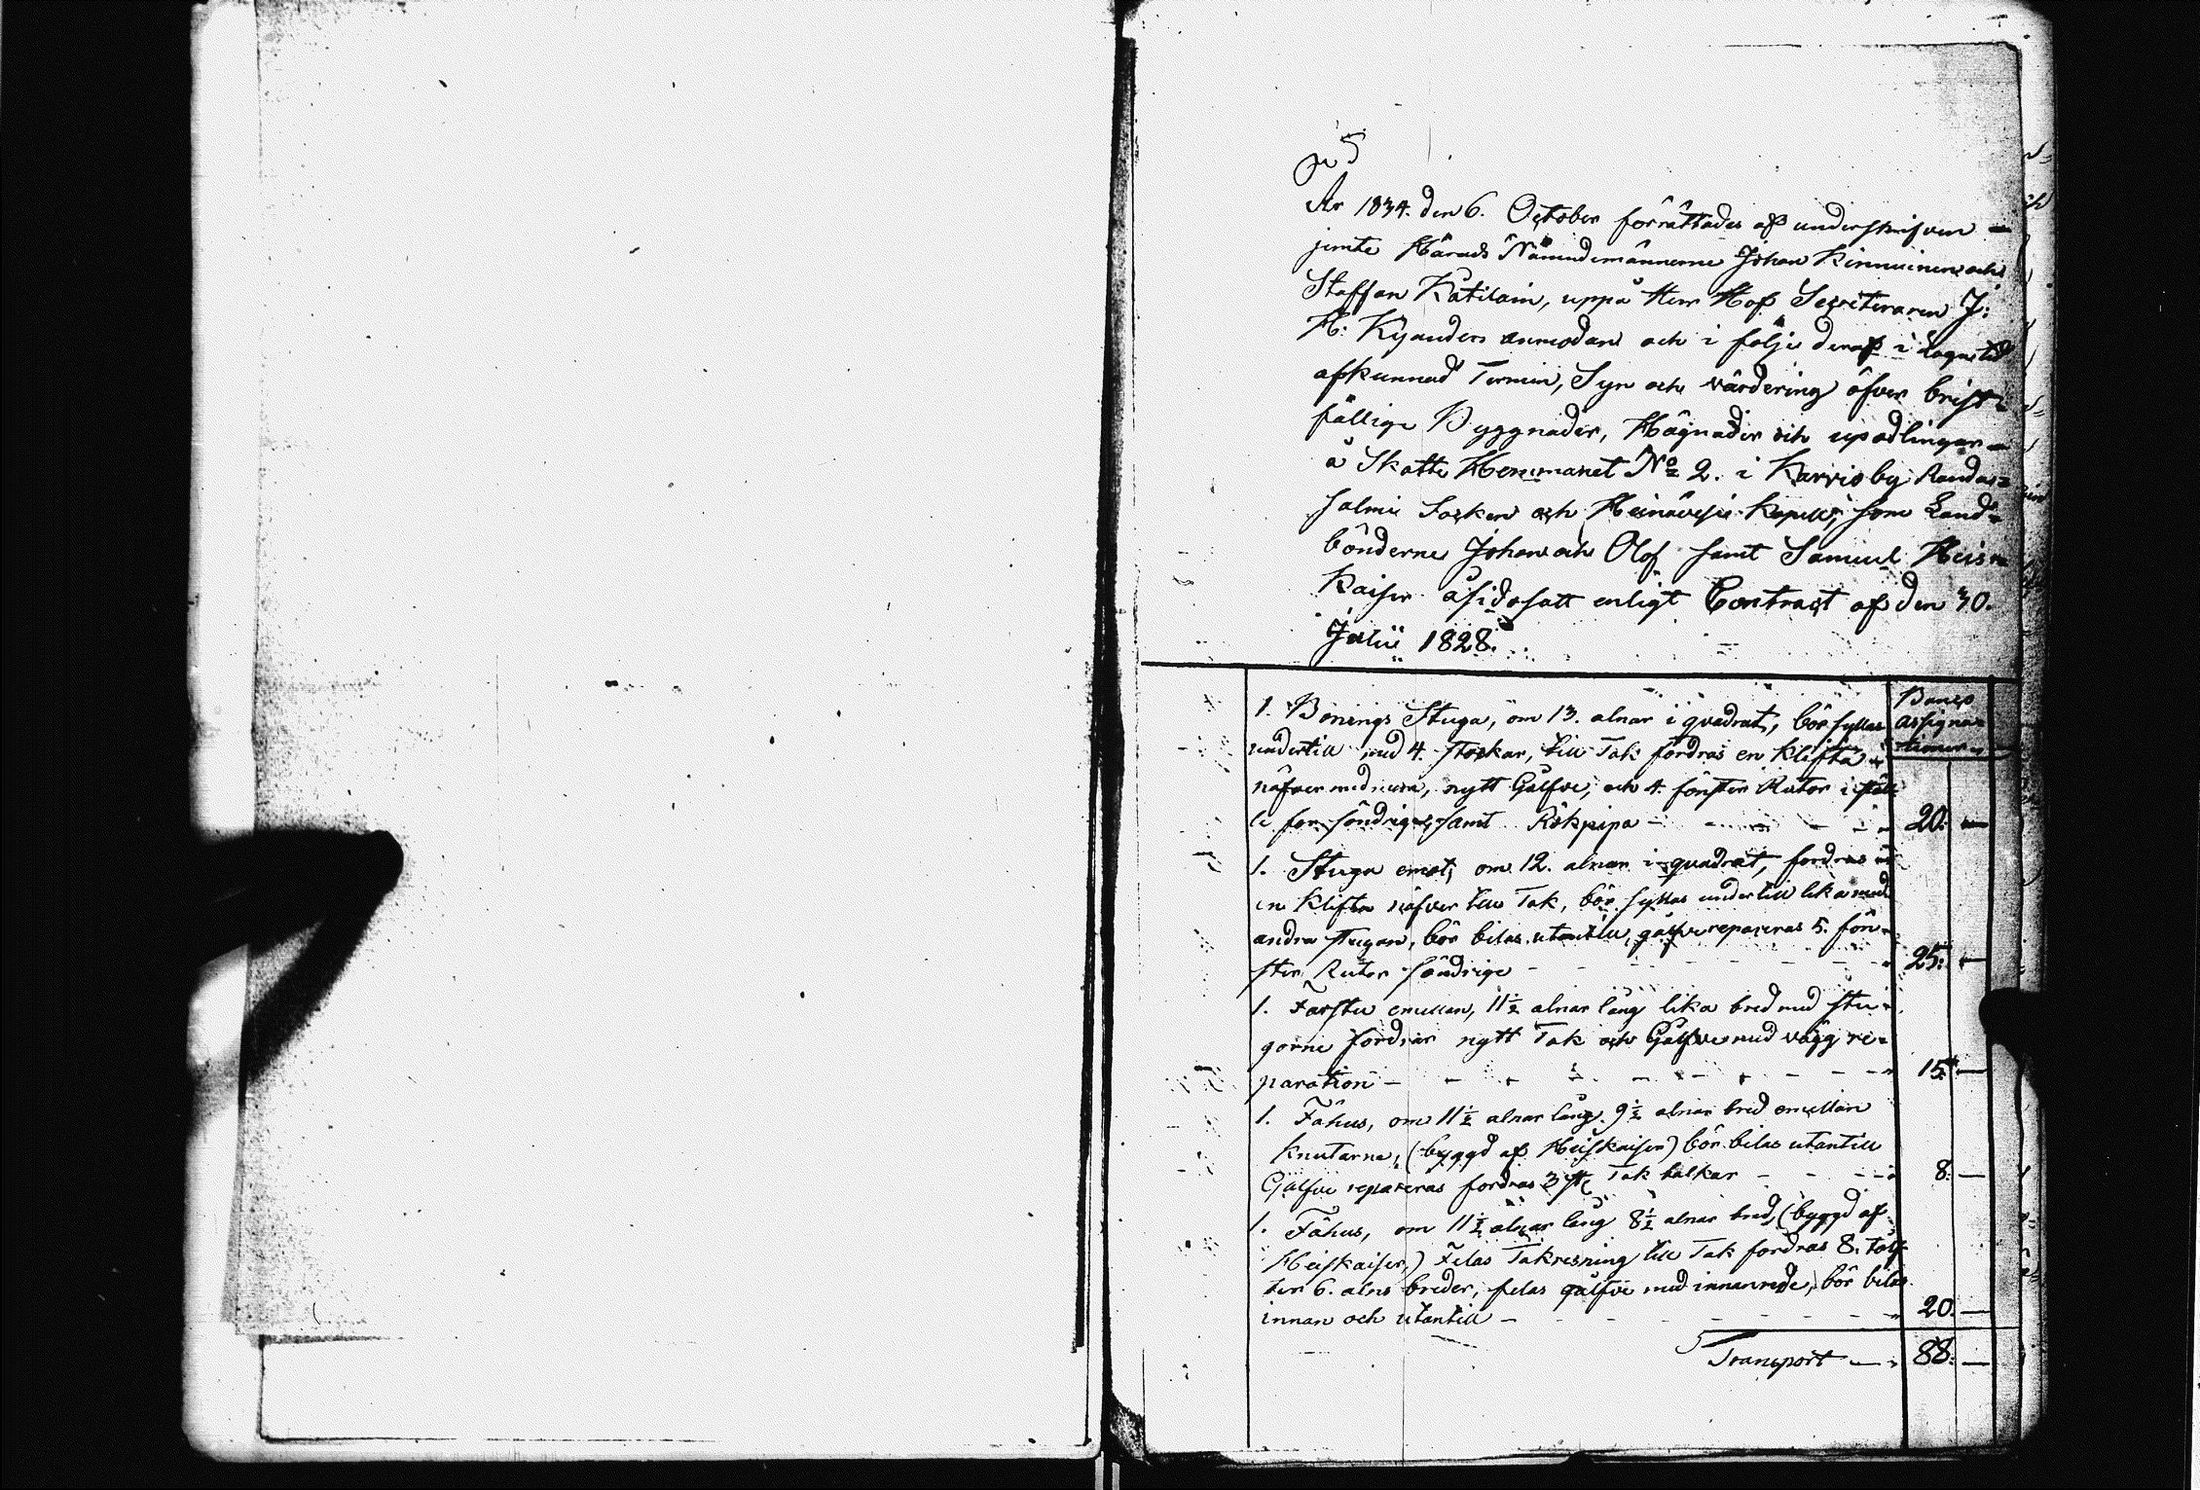 År 1834. den 6. October förrättades af underskrifven
jemte Härads Nämndemännerne Johan Kinnuinen och
Staffan Katilain, uppå Herr Hof Secreteraren J:
H: Kyanders anmodan och i följe deraf i lagu tid
afkunnad Termin, Syn och värdering öfver brist-
fällige Byggnader, Hägnader och upodlingar
å Skatte Hemmanet No 2. i Karvis by Randa-
salmi Socken och Heinävesi Kapell, som Land-
bönderne Johan och Olof samt Samuel Heis-
kaiser åsidosatt enligt Contract af den 30.
Julii 1828.
Banco
assigna-
tioner
1. Bonings Stuga, om 13. alnar i quadrat, bör fyllas
undertill med 4. stockar, till Tak fordras en klifta
näfver med mera, nytt Gålfve, och 4. fönster Rutor i stäl-
le for söndrige, samt Rökpipa - - - 20. —
1. Stuga emot, om 12. alnar i quadrat, fordras
en klifta näfver till Tak, bör fyllas undertill lika med
andra stugan, bör bilas utantill, gålfve repareras 5. fön-
ster Rutor söndrige - - - 25. —
1. Farstu emellan, 11½ alnar lång lika bred med stu-
gorne fordrar nytt Tak och Gålfve med vägg re-
paration - - - 15. —
1. Fähus, om 11½ alnar lång. 9½ alnar bred emellan
knutarne, (byggd af Heiskaiser) bör bilas utantill
Gålfve repareras fordras 3 st. Tak balkar - - - 8. —
1. Fähus, om 11½ alnar lång 8½ alnar bred, (byggd af
Heiskaiser,) Felas Takresning till Tak fordras 8. tolf-
ter 6. alns breder, felas gålfve med innanrede, bör bilas
innan och utantill - - - 20. —
Transport — 88. —